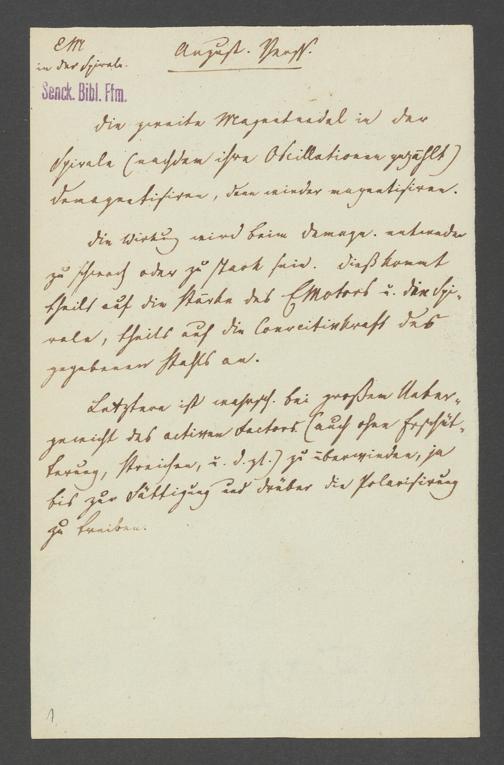 EM
in der Spirale.
August. Verss.
Senck. Bibl. Ffm.
die zweite Magnetnadel in der
Spirale (nachdem ihre Oscillationen gezählt)
demagnetisiren, dann wieder magnetisiren.
die Wirkung wird beim demagn. entweder
zu schwach oder zu stark sein. dieß kommt
theils auf die Stärke des EMotors u. der Spi-
rale, theils auf die Coercitivkraft des
gegebenen Stahls an.
Letztere ist wahrsch. bei großem Ueber-
gewicht des activen Factors (auch ohne Erschüt-
terung, Streichen, u. d. gl.) zu überwinden, ja
bis zur Sättigung und drüber die Polarisirung
zu treiben.
1